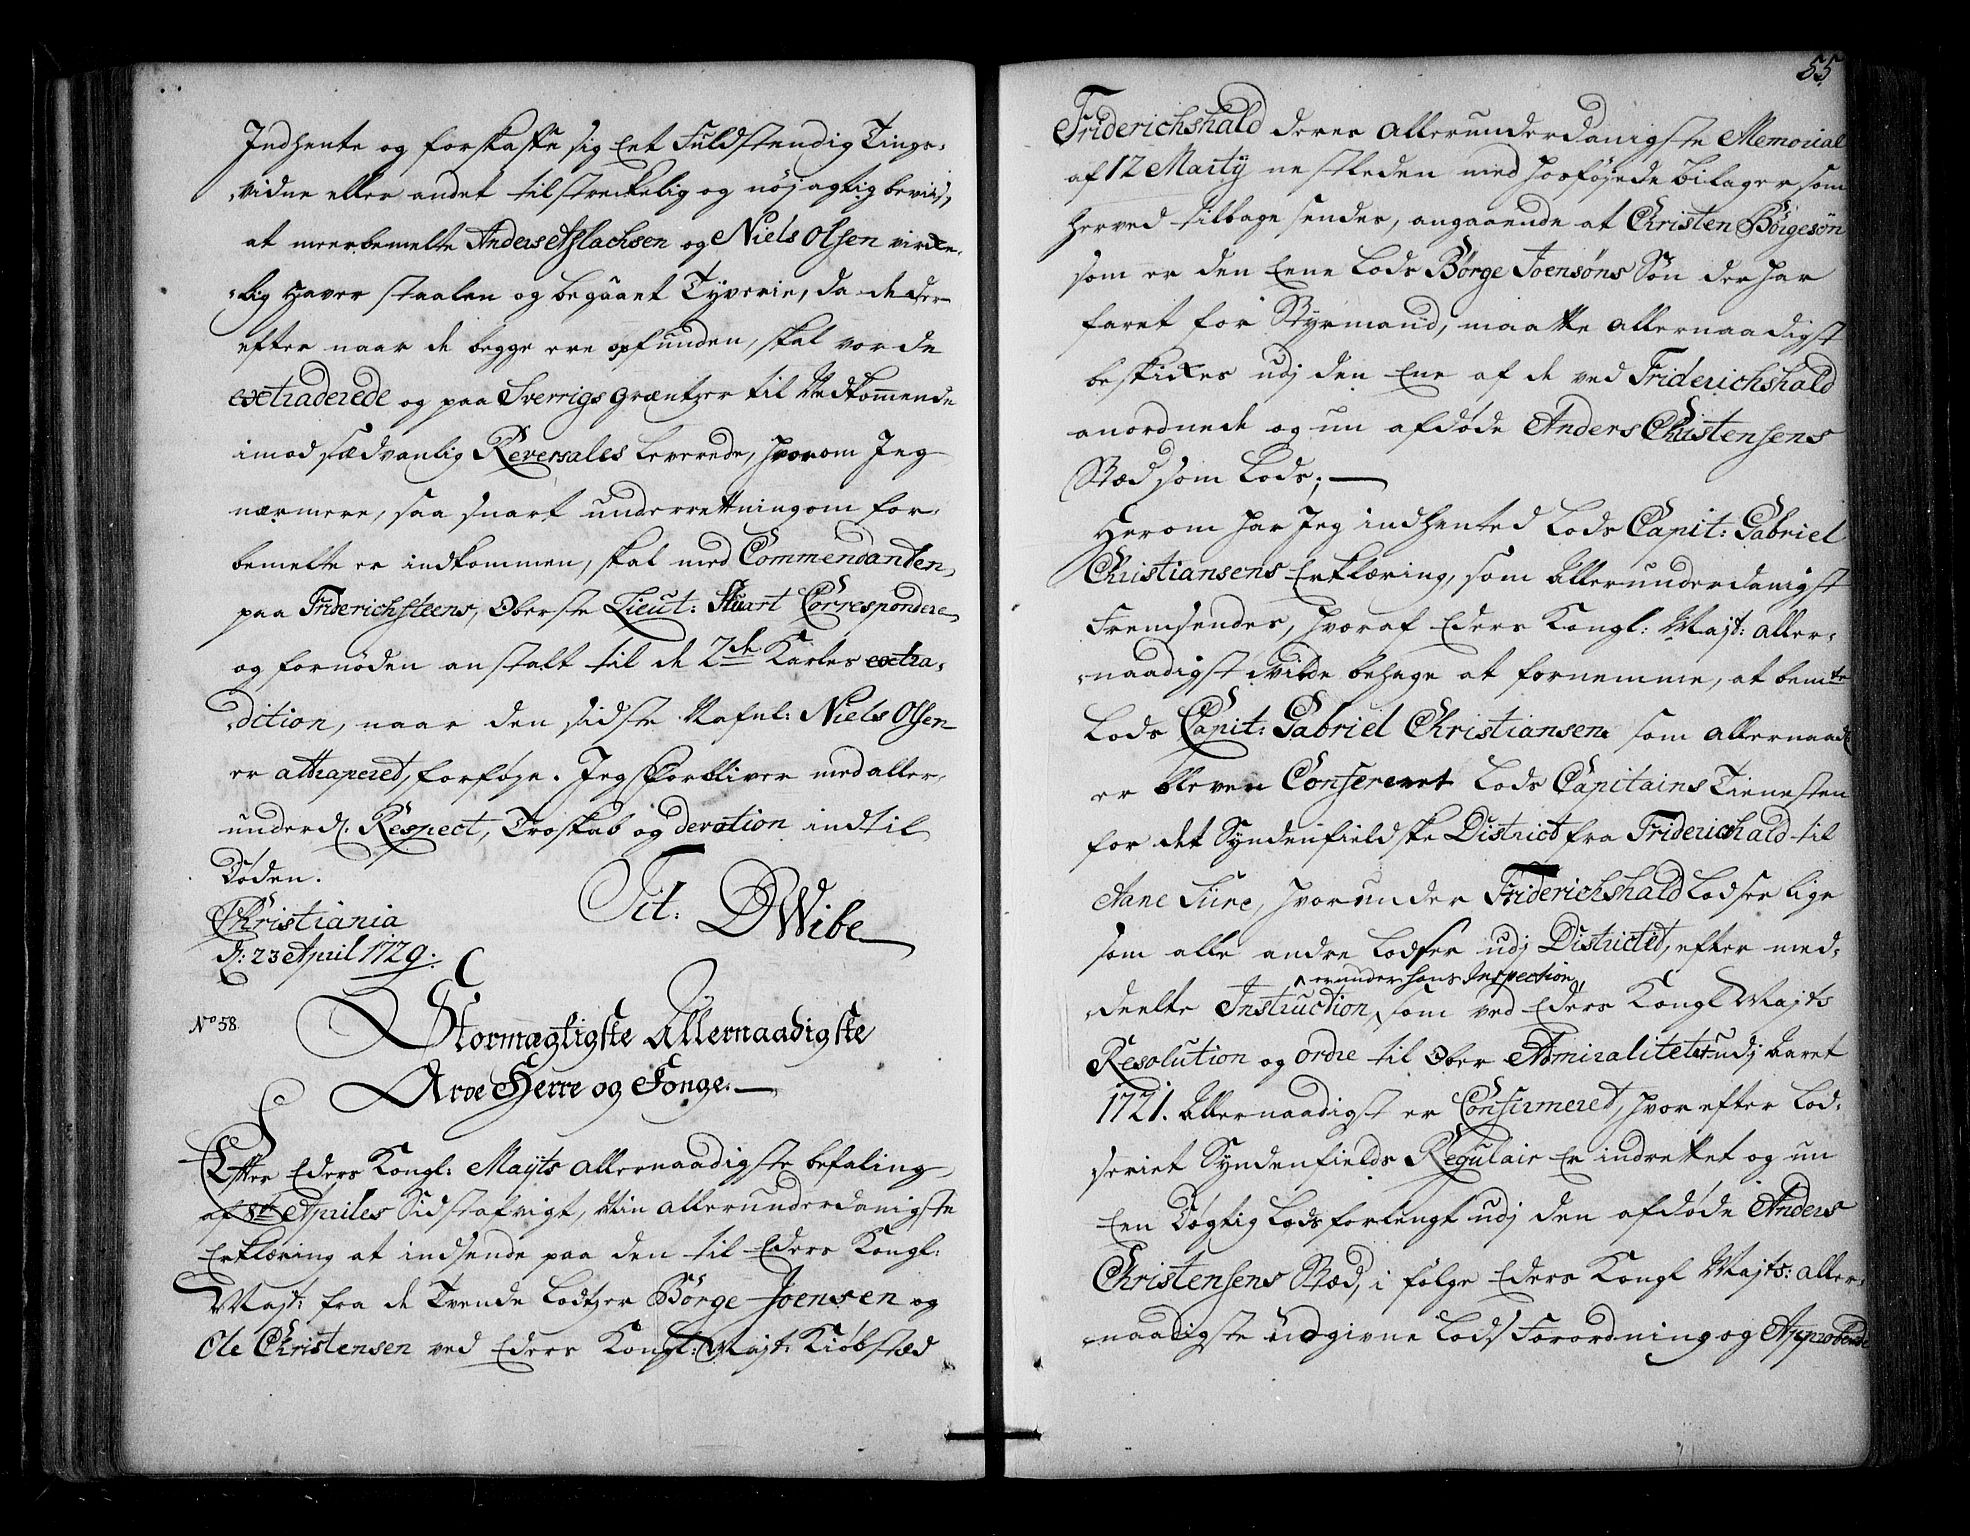 Indhente og forskaffe sig Eet Fuldstendig Tings-
vidne eller andet tilstreckelig og nöjagtig beviis,
at meerbemelte Anders Aslachsen og Niels Olsen vircke-
lig Haver staalen og begaaet Tyverie, da de der-
efter naar de begge ere opfunden, skal vorde
extraderede og paa Sverrigs græntzer til Vedkom̅ende
imod sædvanlig Reversales leverede, hvorom Jeg
nærmere, saa snart underrettning om for-
bemelte er indkommen, skal med Commendanten
paa Friderichsteens, Oberste Lieut: Stuart Correspondere
og fornöden anstalt til de 2de Karles extra-
dition, naar den sidste Nafnl: Niels Olsen
er attraperet, forföye. Jeg forbliver med aller-
underd. Respect, Troskab og devotion indtil
Döden.
Tit: DWibe
Christiania
d: 23 April 1729.
No 58.
Stormægtigste Allernaadigste
Arve Herre og Konge.
Efter Eders Kongl: Mayts allernaadigste befaling
af 8de Apriles Sidst afvigt, Min allerunderdanigste
Erklæring at indsende paa den til Eders Kongl:
Majt: fra de Tvende Lodtzer Börge Joensen og
Ole Christensen ved Eders Kongl: Majt: Kiöbstæd
55
Friderichshald deres allerunderdanigste Memorial
af 12 Marty nestleden med hosföjede bilager som
herved tilbage sendes, angaaende at Christen Börgesön
som er den Eene Lods Börge Joensöns Sön der har
faret for Styrmand, maatte allernaadigst
beskickes udj den Ene af de ved Friderichshald
anordnede og nu afdöde Anders Christensens
Stæd som Lods;
Herom har Jeg indhented Lods Capit: Gabriel
Christiansens Erklæring, som allerunderdanigst
Fremsendes, hvoraf Eders Kongl: Majt: aller-
naadigst vilde behage at fornemme, at bemte
Lods Capit: Gabriel Christiansen som allernaadt
er bleven Confereret Lods Capitains Tienesten
for det Syndenfieldske District fra Friderichald til
Aane Siire, hvorunder Friderichshald Lodser lige
som alle andre Lodser udj Districtet, efter med-
^ er under hans Inspection,
deelte Instruction, som ved Eders Kongl Majts
Resolution og ordre til Ober Admiralitetet udj Aaret
1721. Allernaadigst er Confirmeret, hvor efter Lod-
seriet Syndenfields Regulair Er indrettet og nu
Een Dögtig Lods forlengt udj den afdöde Anders
Christensens Stæd, i fölge Eders Kongl Majts: aller-
naadigste udgivne Lods Forordning og Approberede